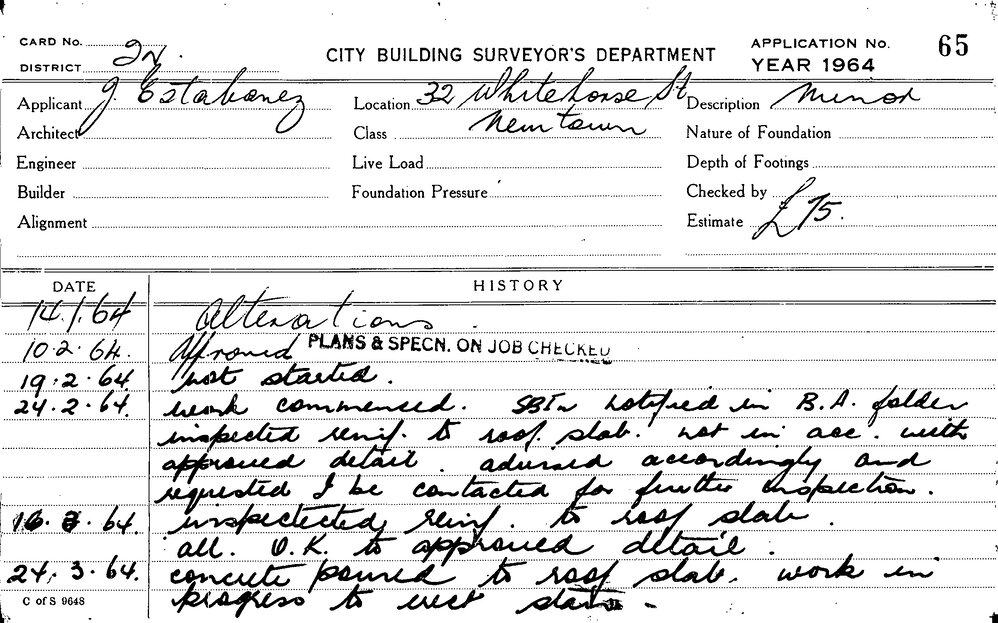 CARD No. 2N.
DISTRICT
CITY BUILDING SURVEYOR'S DEPARTMENT
APPLICATION No. 65
YEAR 1964
Applicant J. Estabanez
Location 32 Whitehorse St
Description Minor
Architect
Class Newtown
Nature of Foundation
Engineer
Live Load
Depth of Footings
Builder
Foundation Pressure
Checked by
Alignment
Estimate £75.
DATE
HISTORY
14.1.64 Alterations.
10.2.64. Approved PLANS & SPECN. ON JOB CHECKED
19.2.64. not started.
24.2.64. work commensed. notified in B.A. folder
inspected reinf. to roof slab. not in acc. with
approved detail. advised accordingly and
requested I be contacted for further inspection.
16.3.64. inspectected reinf. to roof slab.
all. O.K. to approved detail.
24.3.64. concrete poured to roof slab. work in
progress to erect
C of S 9648